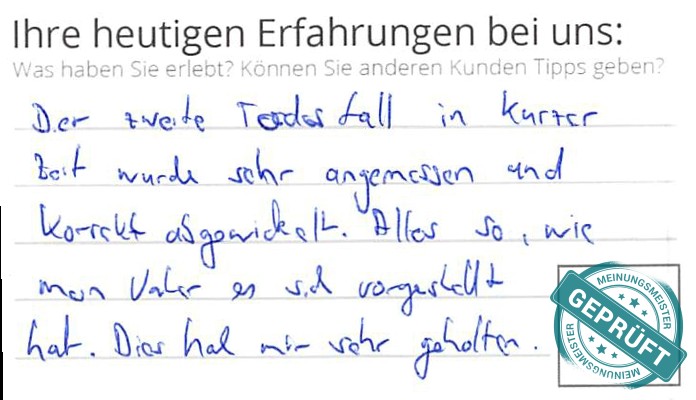 Ihre heutigen Erfahrungen bei uns:
Was haben Sie erlebt? Können Sie anderen Kunden Tipps geben?
Der zweite Todesfall in kurzer
Zeit wurde sehr angemessen und
korrekt abgewickelt. Alles so, wie
mein Vater es sich vorgestellt
hat. Dies hat mir sehr geholfen.
MEINUNGSMEISTER
GEPRÜFT
MEINUNGSMEISTER
MEINUNGSMEISTER